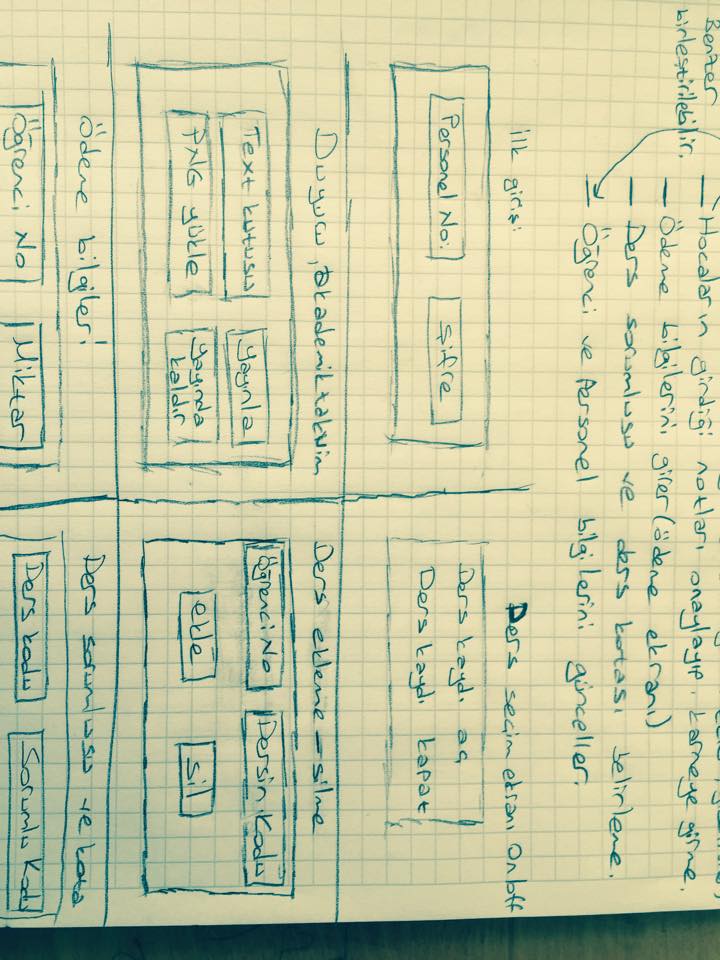 Benzer
birleştirilebilir.
— Hocaların girdiği notları onaylayıp, karneye girme.
— Ödeme bilgilerini girer (ödeme ekranı)
— Ders sorumlusu ve ders kotası belirleme.
— Öğrenci ve Personel bilgilerini günceller.
ilk giriş:
Personel No:
Şifre
Ders seçim ekranı On/Off
Ders kaydı aç
Ders kaydı kapat
Duyuru, Akademik takvim
Text kutusu
Yayınla
PNG yükle
Yayında kaldır
Ders ekleme – silme
Öğrenci No
Dersin Kodu
ekle
sil
Ödeme bilgileri
Öğrenci No
Miktar
Ders sorumlusu ve kota
Ders kodu
Sorumlu Kodu